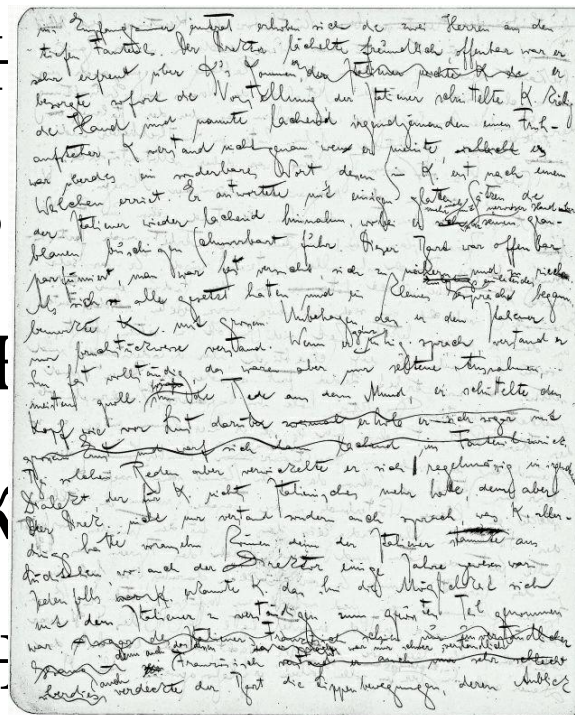 ins Empfangszimmer eintrat erhoben sich die zwei Herren aus den
tiefen Fauteuils. Der Direktor lächelte freundlich offenbar war er
sehr erfreut über K's Kommen, der Italiener K die er
besorgte sofort die Vorstellung der Italiener schüttelte K kräftig
die Hand und nannte lachend irgendjemanden einen Früh-
aufsteher, K verstand nicht genau wen er meinte, es
war überdies ein sonderbares Wort dessen Sinn K. erst nach einem
Weilchen erriet. Er antwortete mit einigen glatten Sätzen die
der Italiener wieder lachend hinnahm, wobei er mehrmals mit nervöser Hand über seinen grau-
blauen buschigen Schnurrbart fuhr. Dieser Bart war offenbar
parfümiert, man war fast versucht sich zu nähern und zu riechen
Als sich alle gesetzt hatten und ein kleines einleitendes Gespräch begann,
bemerkte K. mit grossem Unbehagen dass er den Italiener
nur bruchstückweise verstand. Wenn er ganz ruhig sprach verstand er
ihn fast vollständig das waren aber nur seltene Ausnahmen,
meistens quoll ihm die Rede aus dem Mund, er schüttelte den
Kopf wie vor Lust darüber erhob er sich sogar mit
grossem und warf sich dann lachend in Fauteuil zurück
Bei solchen Reden aber verwickelte er sich regelmässig in irgend
Dialekt der für K nichts Italienisches mehr hatte den aber
der Direk. nicht nur verstand sondern auch sprach was K. aller-
dings hatte voraussehn können denn der Italiener stammte aus
Süditalien wo auch der Direktor einige Jahre gewesen war.
Jedenfalls erkannte K. dass ihm die Möglichkeit sich
mit dem Italiener zu verständigen zum grössten Teil genommen
war. des Italieners Französisch schien
denn auch dessen Französisch war nur schwer verständlich
auch verdeckte der Bart die Lippenbewegungen, deren Anblick